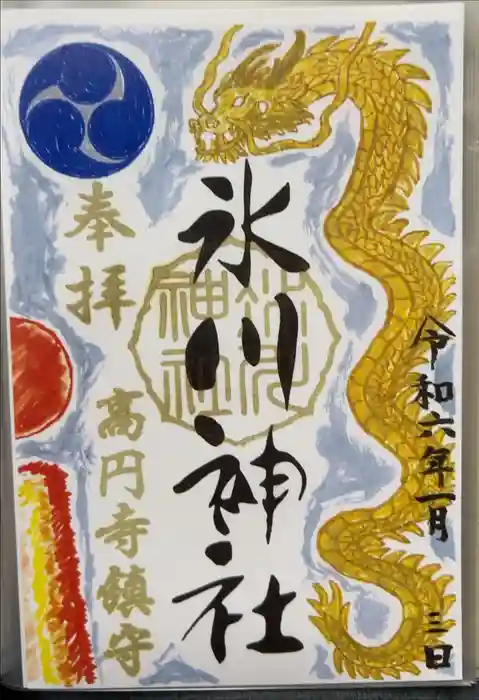 令和六年一月三日
氷川神社
氷川
神社
奉拝
高円寺鎮守